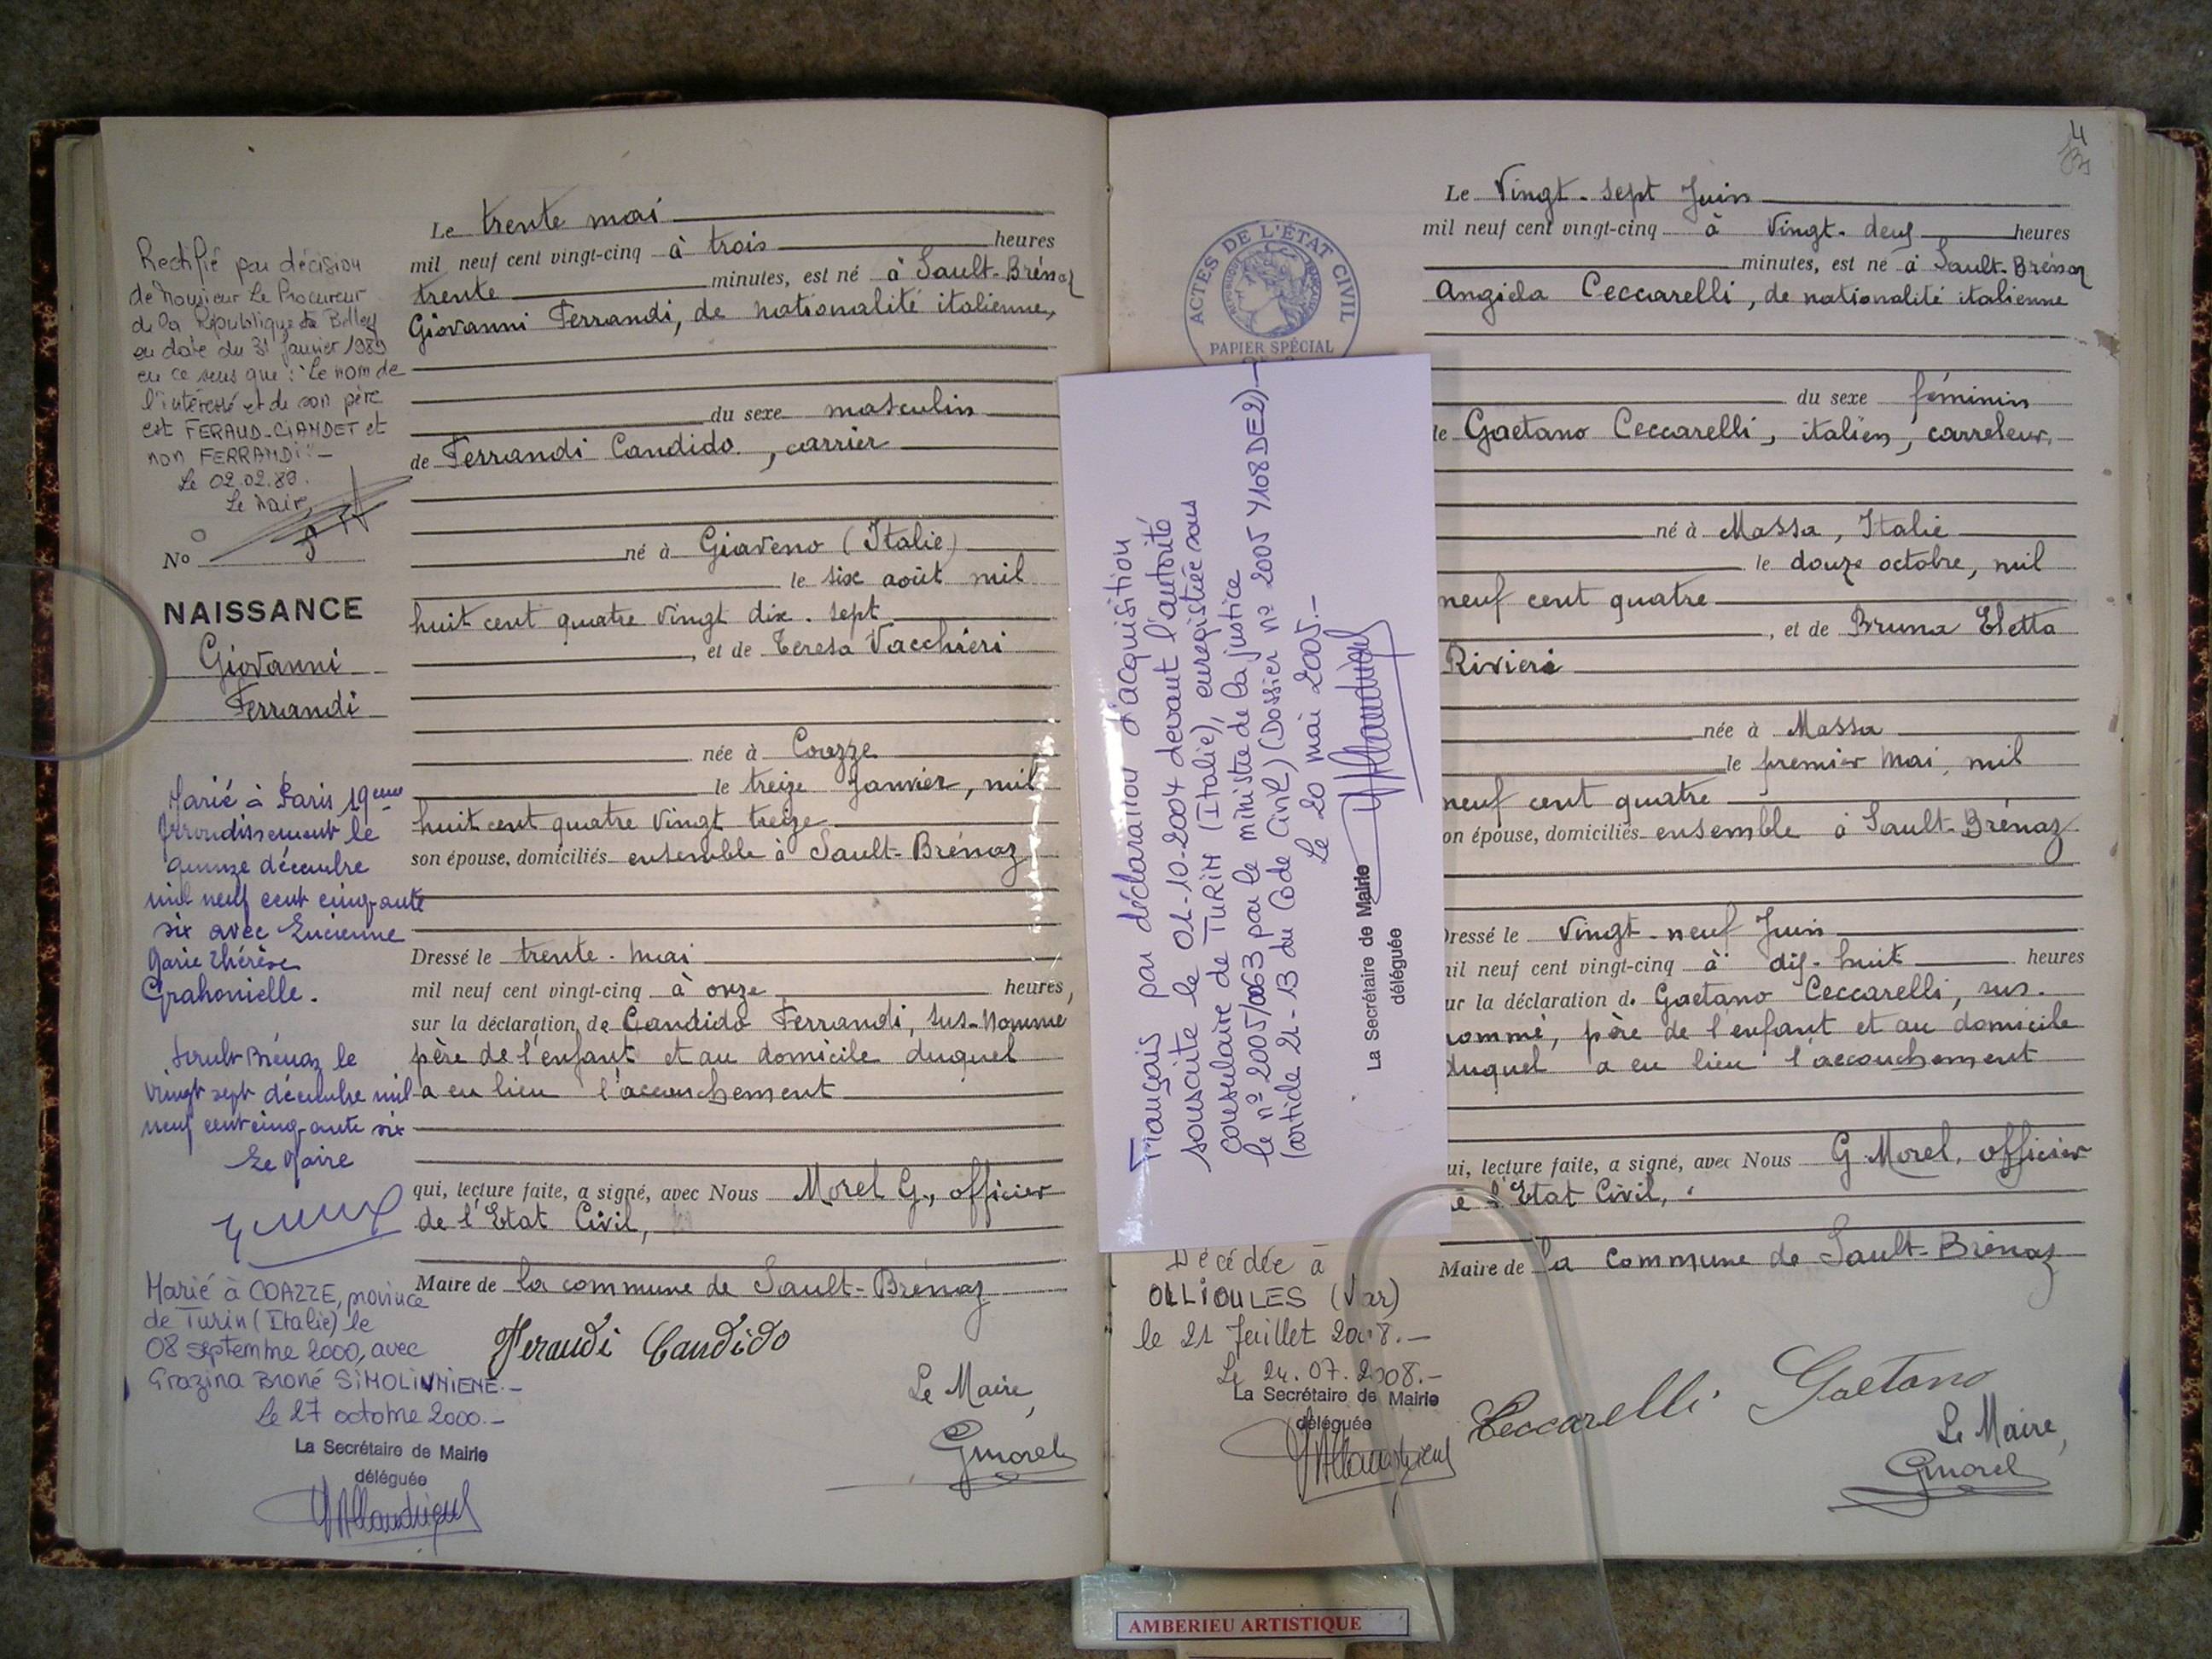 Rectifié par décision
de Monsieur Le Procureur
de la République de Belley
en date du 31 janvier 1989
en ce sens que : "Le nom de
l'intéressé et de son père
est FERAUD-CIANDET et
non FERRANDI" -
Le 02.02.89.
Le Maire,
No 8
NAISSANCE
Giovanni
Ferrandi
Marié à Paris 19eme
Arrondissement le
quinze décembre
mil neuf cent cinquante
six avec Lucienne
Marie Thérèse
Grahonielle.
Sault Brénaz le
vingt sept décembre mil
neuf cent cinquante six
Le Maire
Marié à COAZZE, province
de Turin (Italie) le
08 septembre 2000, avec
Grazina Broné SIMOLIUNIENE.-
Le 27 octobre 2000.-
La Secrétaire de Mairie
déléguée
Le trente mai
mil neuf cent vingt-cinq à trois heures
trente minutes, est né à Sault-Brénaz
Giovanni Ferrandi, de nationalité italienne,
du sexe masculin
de Ferrandi Candido, carrier
né à Giaveno (Italie)
le six août mil
huit cent quatre vingt dix. sept
, et de Teresa Vacchieri
née à Coazze
le treize Janvier, mil
huit cent quatre vingt treize
son épouse, domiciliés ensemble à Sault-Brénaz
Dressé le trente. mai
mil neuf cent vingt-cinq à onze heures,
sur la déclaration de Candido Ferrandi, sus-nommé
père de l'enfant et au domicile duquel
a eu lieu l'accouchement
qui, lecture faite, a signé, avec Nous Morel G., officier
de l'Etat Civil,
Maire de la commune de Sault-Brénaz
Feraudi Candido
Le Maire,
GMorel
4
ACTES DE L'ÉTAT CIVIL
RÉPUBLIQUE FRANÇAISE
PAPIER SPÉCIAL
Français par déclaration d'acquisition
souscrite le 01-10-2004 devant l'autorité
consulaire de TURIN (Italie), enregistrée sous
le n° 2005/0063 par le ministre de la justice
(article 21-13 du Code Civil) (Dossier n° 2005 Y108 DE2)-
Le 20 mai 2005.-
La Secrétaire de Mairie
déléguée
Décédée à
OLLIOULES (Var)
le 21 Juillet 2008.-
Le 24.07.2008.-
La Secrétaire de Mairie
déléguée
Le Vingt-sept Juin
mil neuf cent vingt-cinq à Vingt-deux heures
minutes, est né à Sault-Brénaz
Angiola Ceccarelli, de nationalité italienne
du sexe féminin
de Gaetano Ceccarelli, italien, carreleur,
né à Massa, Italie
le douze octobre, mil
neuf cent quatre
, et de Bruna Eletta
Rivieri
née à Massa
le premier Mai, mil
neuf cent quatre
son épouse, domiciliés ensemble à Sault-Brénaz
Dressé le Vingt-neuf Juin
mil neuf cent vingt-cinq à dix-huit heures
sur la déclaration de Gaetano Ceccarelli, sus.
nommé, père de l'enfant et au domicile
duquel a eu lieu l'accouchement
qui, lecture faite, a signé, avec Nous G. Morel, officier
de l'Etat Civil,
Maire de la Commune de Sault-Brénaz
Ceccarelli Gaetano
Le Maire,
GMorel
AMBERIEU ARTISTIQUE